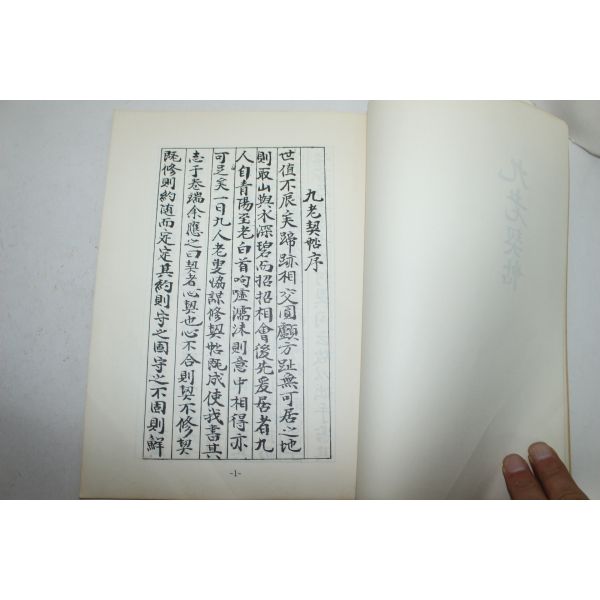 九老契帖序
世值不辰矣蹄跡相交圓顱方趾無可居之地
則取山與水深碧而招招相會後先爰居者九
人自青陽至老白首呴噓濡沫則意中相得亦
可足矣一日九人老叟恊謀修契帖旣成使我書其
志于卷端余應之曰契者心契也心不合則契不修契
旣修則約随而定定其約則守之固守之不固則觧
-1-
九老契帖